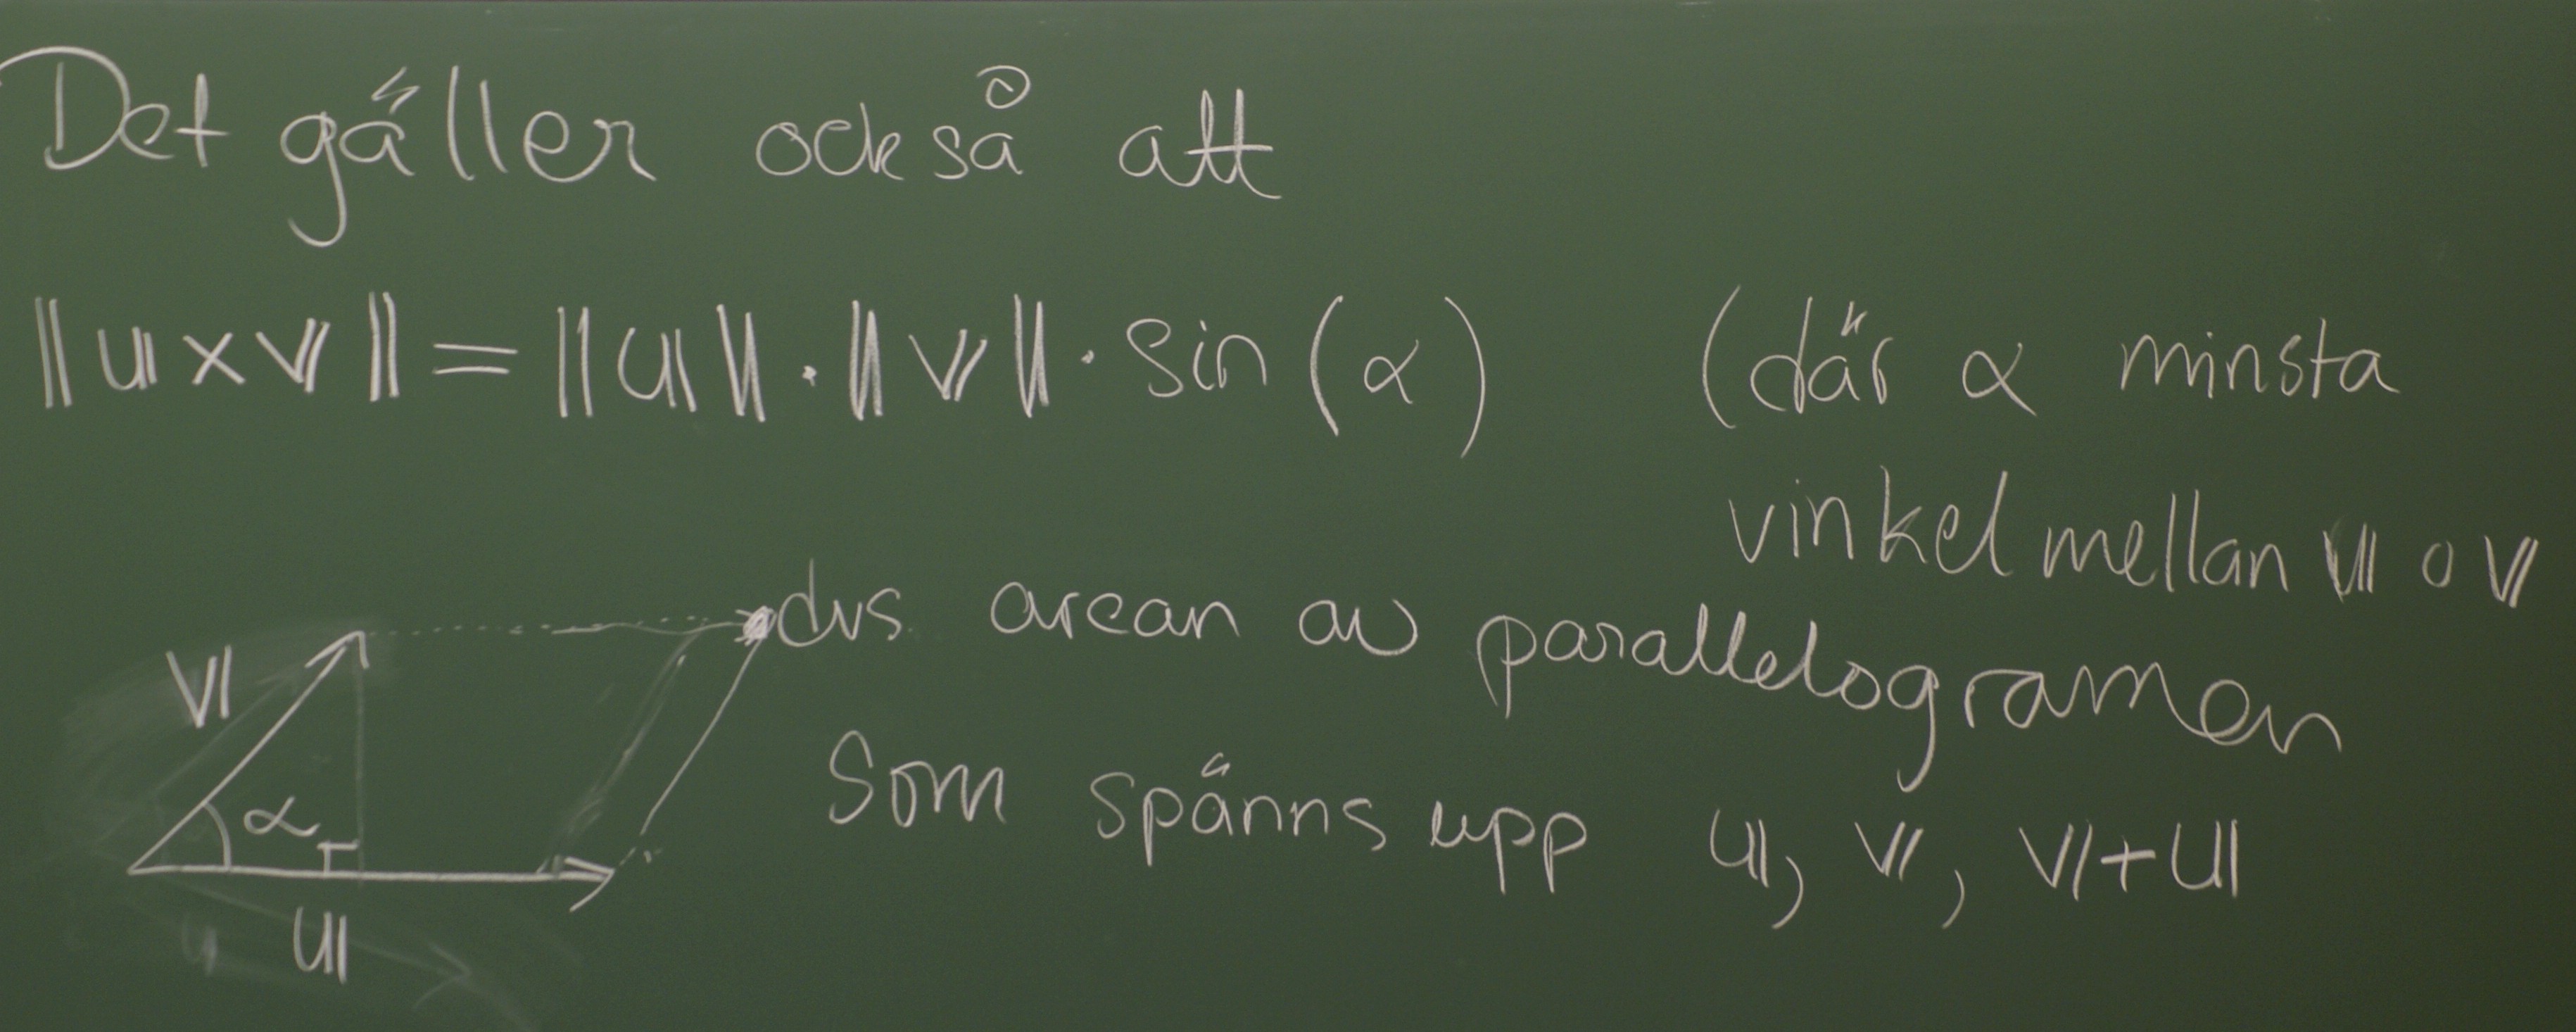 Det gäller också att
‖𝕦 × 𝕧‖ = ‖𝕦‖ · ‖𝕧‖ · sin(α) (där α minsta
vinkel mellan 𝕦 o 𝕧
dvs arean av parallelogramen
som spänns upp 𝕦, 𝕧, 𝕧+𝕦
𝕧
α
𝕦